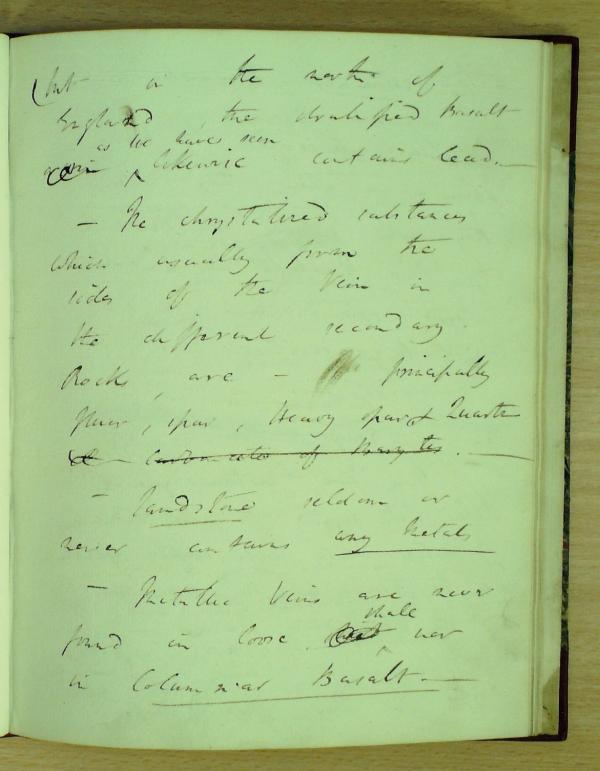 but in the north of
England, the stratified Basalt
as we have seen
likewise contains lead. —
— The chrystalized substances
which usually form the
sides of the Vein in
the different secondary
Rocks, are — principally
fluor, spar, Heavy spar & Quartz
carbonate of Barytes . —
— Sandstone seldom or
never contains any Metals
— Metallic Veins are never
found in loose
shale
nor
in Columnar Basalt. —